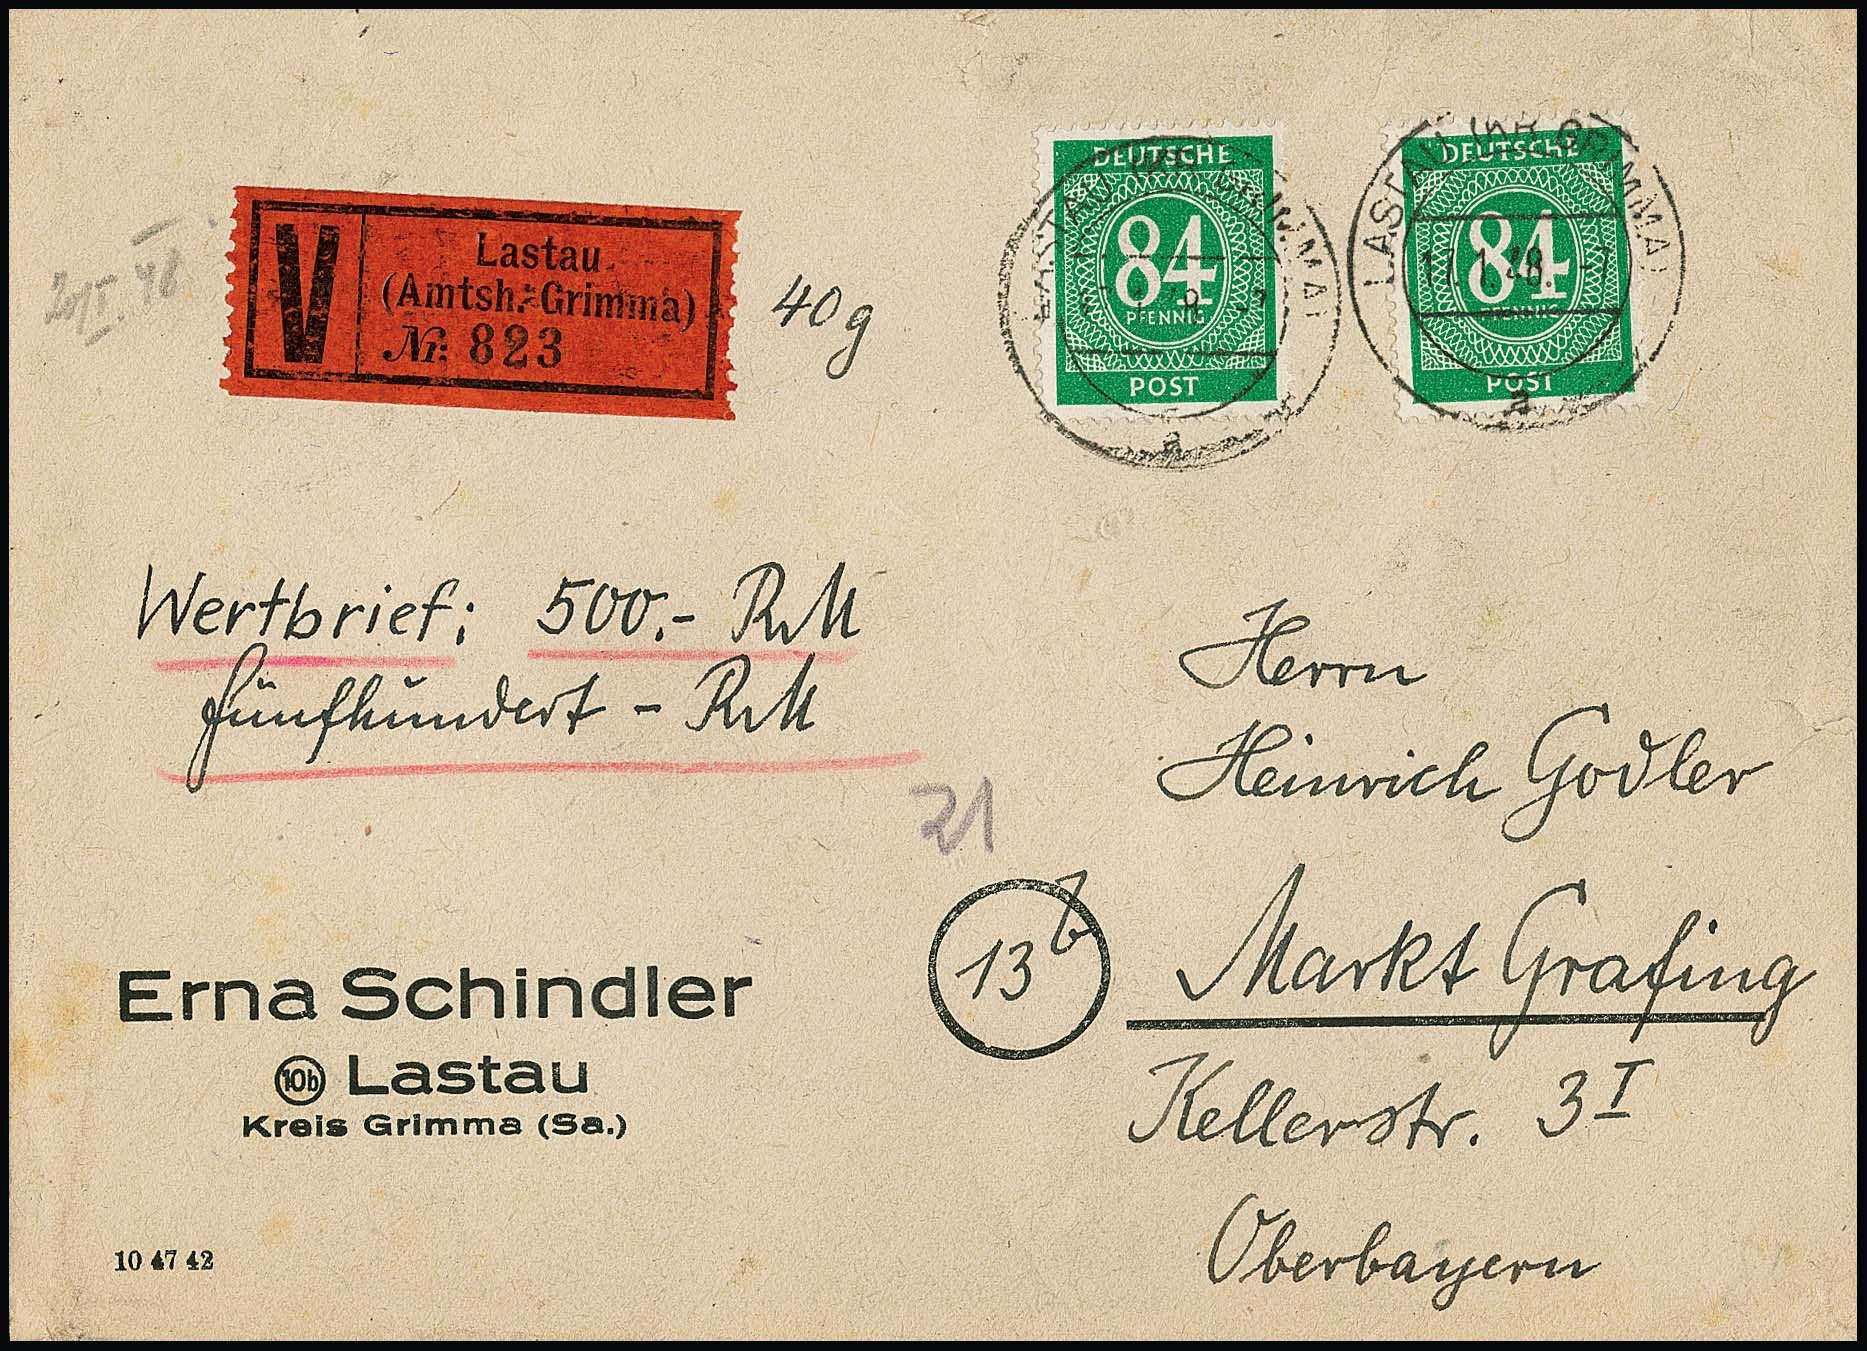 V
Lastau
(Amtsh. Grimma)
Nr. 823
40 g
DEUTSCHE
84
PFENNIG
POST
DEUTSCHE
84
PFENNIG
POST
LASTAU (KR. GRIMMA)
a
LASTAU (KR. GRIMMA)
17.1.48.-7
a
Wertbrief: 500.- RM
fünfhundert - RM
21
Herrn
Heinrich Godler
13b
Markt Grafing
Kellerstr. 3 I
Oberbayern
Erna Schindler
10b Lastau
Kreis Grimma (Sa.)
10 47 42